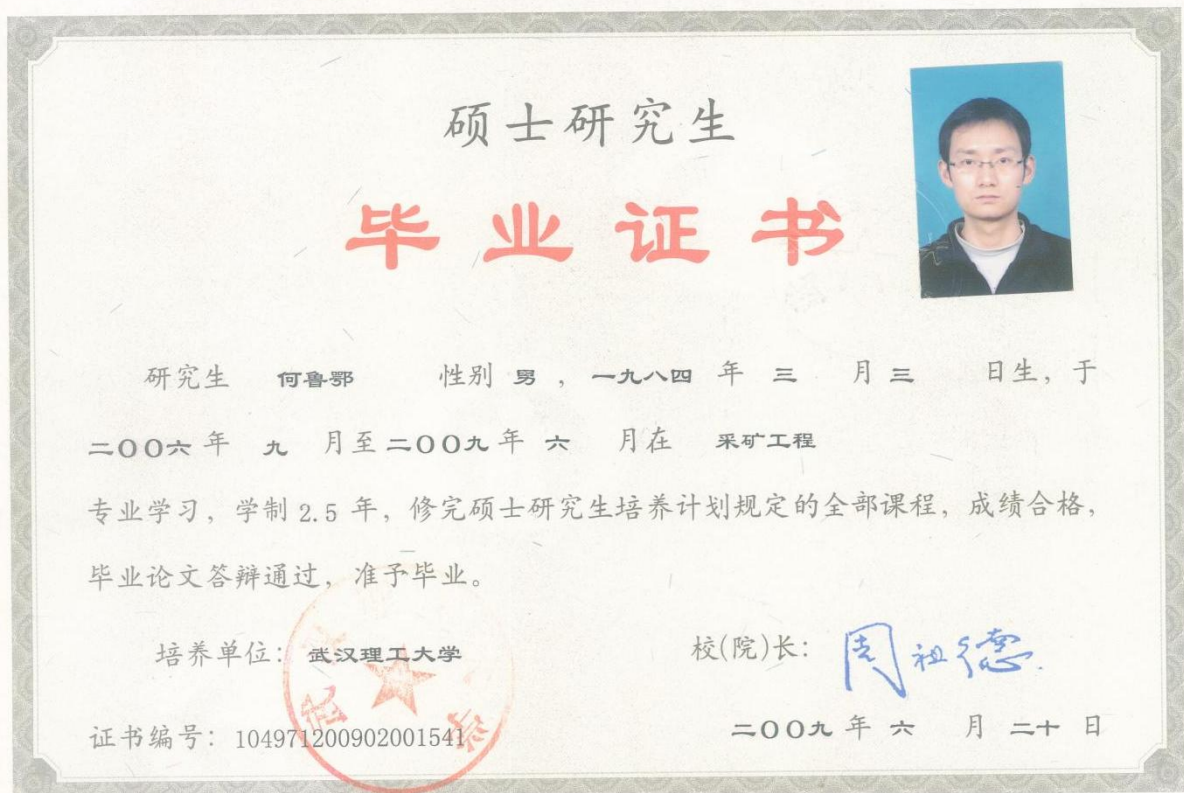 硕士研究生
毕业证书
研究生 何鲁鄂 性别 男 ，一九八四 年 三 月 三 日生，于
二〇〇六 年 九 月至 二〇〇九 年 六 月在 采矿工程
专业学习，学制 2.5 年，修完硕士研究生培养计划规定的全部课程，成绩合格，
毕业论文答辩通过，准予毕业。
培养单位：武汉理工大学
校(院)长：周祖德
证书编号：104971200902001541
二〇〇九 年 六 月 二十 日